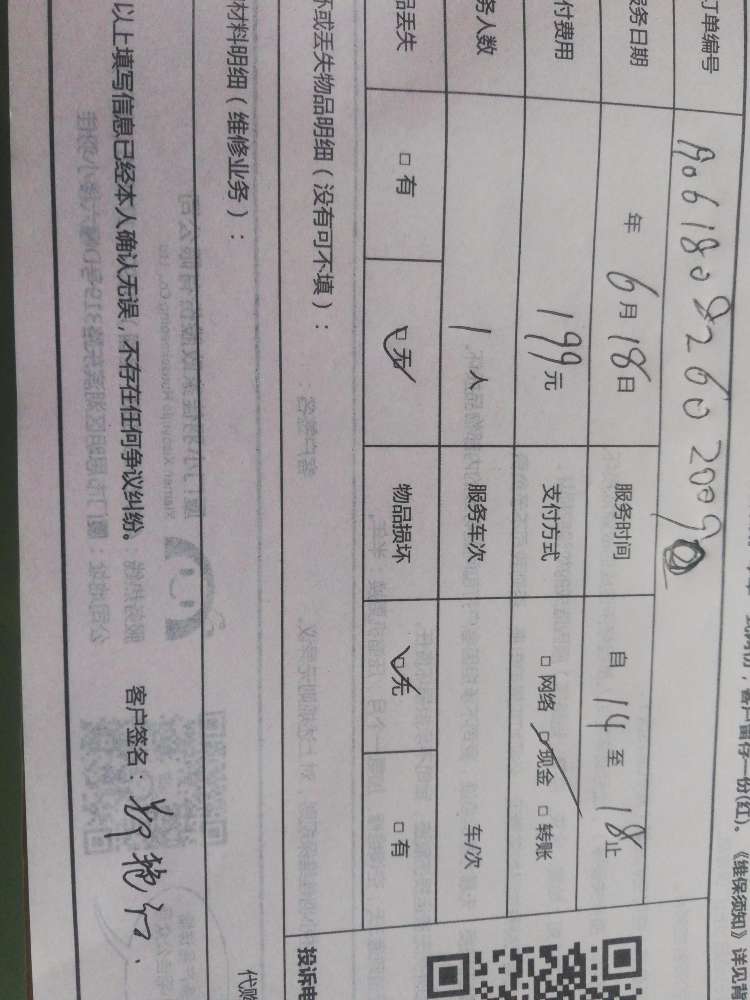 式两份，客户留存一份(红)。《维保须知》详见背
订单编号 A06180826020092
服务日期 年6月18日 服务时间 自14至18止
付费用 199元 支付方式 □网络 □现金 □转账
务人数 1人 服务车次 车/次
品丢失 □有 □无 物品损坏 □无 □有
坏或丢失物品明细（没有可不填）：
投诉电
材料明细（维修业务）：
代购
以上填写信息已经本人确认无误，不存在任何争议纠纷。 客户签名：